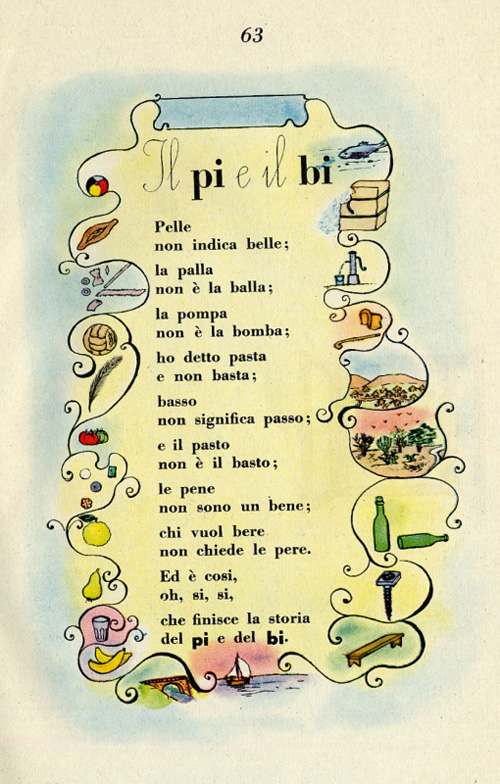 63
Il pi e il bi
Pelle
non indica belle;
la palla
non è la balla;
la pompa
non è la bomba;
ho detto pasta
e non basta;
basso
non significa passo;
e il pasto
non è il basto;
le pene
non sono un bene;
chi vuol bere
non chiede le pere.
Ed è così,
oh, sì, sì,
che finisce la storia
del pi e del bi.